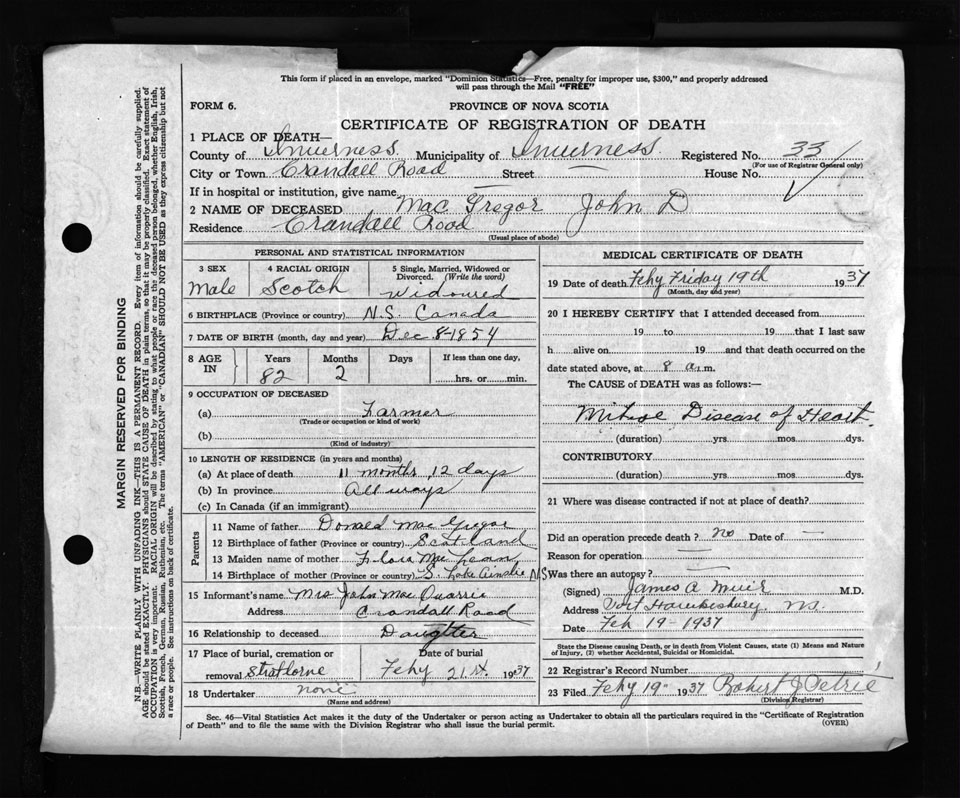 This form if placed in an envelope, marked "Dominion Statistics—Free, penalty for improper use, $300," and properly addressed
will pass through the Mail "FREE"
FORM 6. PROVINCE OF NOVA SCOTIA
CERTIFICATE OF REGISTRATION OF DEATH
1 PLACE OF DEATH—
County of Inverness Municipality of Inverness Registered No. 33
(For use of Registrar General only)
City or Town Crandall Road Street — House No.
If in hospital or institution, give name —
2 NAME OF DECEASED Mac Gregor John D
Residence Crandall Road
(Usual place of abode)
PERSONAL AND STATISTICAL INFORMATION
3 SEX 4 RACIAL ORIGIN 5 Single, Married, Widowed or
Divorced. (Write the word)
Male Scotch Widoured
6 BIRTHPLACE (Province or country) N.S. Canada
7 DATE OF BIRTH (month, day and year) Dec 8-1854
8 AGE IN Years Months Days If less than one day,
82 2 hrs. or min.
9 OCCUPATION OF DECEASED
(a) Farmer
(Trade or occupation or kind of work)
(b)
(Kind of industry)
10 LENGTH OF RESIDENCE (in years and months)
(a) At place of death 11 months, 12 days
(b) In province All ways
(c) In Canada (if an immigrant)
Parents
11 Name of father Donald Mac Gregor
12 Birthplace of father (Province or country) Scotland
13 Maiden name of mother Flora Mac Lean
14 Birthplace of mother (Province or country) S. Lake Ainslie NS
15 Informant's name Mrs John Mac Quarrie
Address Crandall Road
16 Relationship to deceased Daughter
17 Place of burial, cremation or Date of burial
removal Strathlorne Feby 21st 1937
18 Undertaker none
(Name and address)
MEDICAL CERTIFICATE OF DEATH
19 Date of death Feby Friday 19th 1937
(Month, day and year)
20 I HEREBY CERTIFY that I attended deceased from
19 to 19 that I last saw
h alive on 19 and that death occurred on the
date stated above, at 8 a.m.
The CAUSE of DEATH was as follows:—
Disease of Heart.
(duration) yrs. mos. dys.
CONTRIBUTORY
(duration) yrs. mos. dys.
21 Where was disease contracted if not at place of death?
Did an operation precede death? no Date of —
Reason for operation —
Was there an autopsy? —
(Signed) James A Muir M.D.
Address Port Hawkesbury, N.S.
Date Feb 19-1937
State the Disease causing Death, or in death from Violent Causes, state (1) Means and Nature
of Injury, (2) whether Accidental, Suicidal or Homicidal.
22 Registrar's Record Number
23 Filed Feby 19 1937 Robert J Petrie
(Division Registrar)
Sec. 46—Vital Statistics Act makes it the duty of the Undertaker or person acting as Undertaker to obtain all the particulars required in the "Certificate of Registration
of Death" and to file the same with the Division Registrar who shall issue the burial permit. (OVER)
MARGIN RESERVED FOR BINDING
N.B.—WRITE PLAINLY WITH UNFADING INK—THIS IS A PERMANENT RECORD. Every item of information should be carefully supplied.
AGE should be stated EXACTLY. PHYSICIANS should STATE CAUSE OF DEATH in plain terms, so that it may be properly classified. Exact statement of
OCCUPATION is very important. RACIAL ORIGIN will be described by stating to what people or race the deceased person belonged, whether English, Irish,
Scottish, French, German, Russian, Ruthenian, etc. The terms "AMERICAN" or "CANADIAN" SHOULD NOT BE USED as they express citizenship but not
a race or people. See instructions on back of certificate.